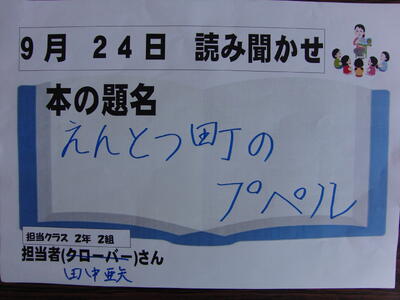 9月 24日 読み聞かせ
本の題名
えんとつ町の
プペル
担当クラス 2年 2組
担当者(クローバー)さん
田中亜矢